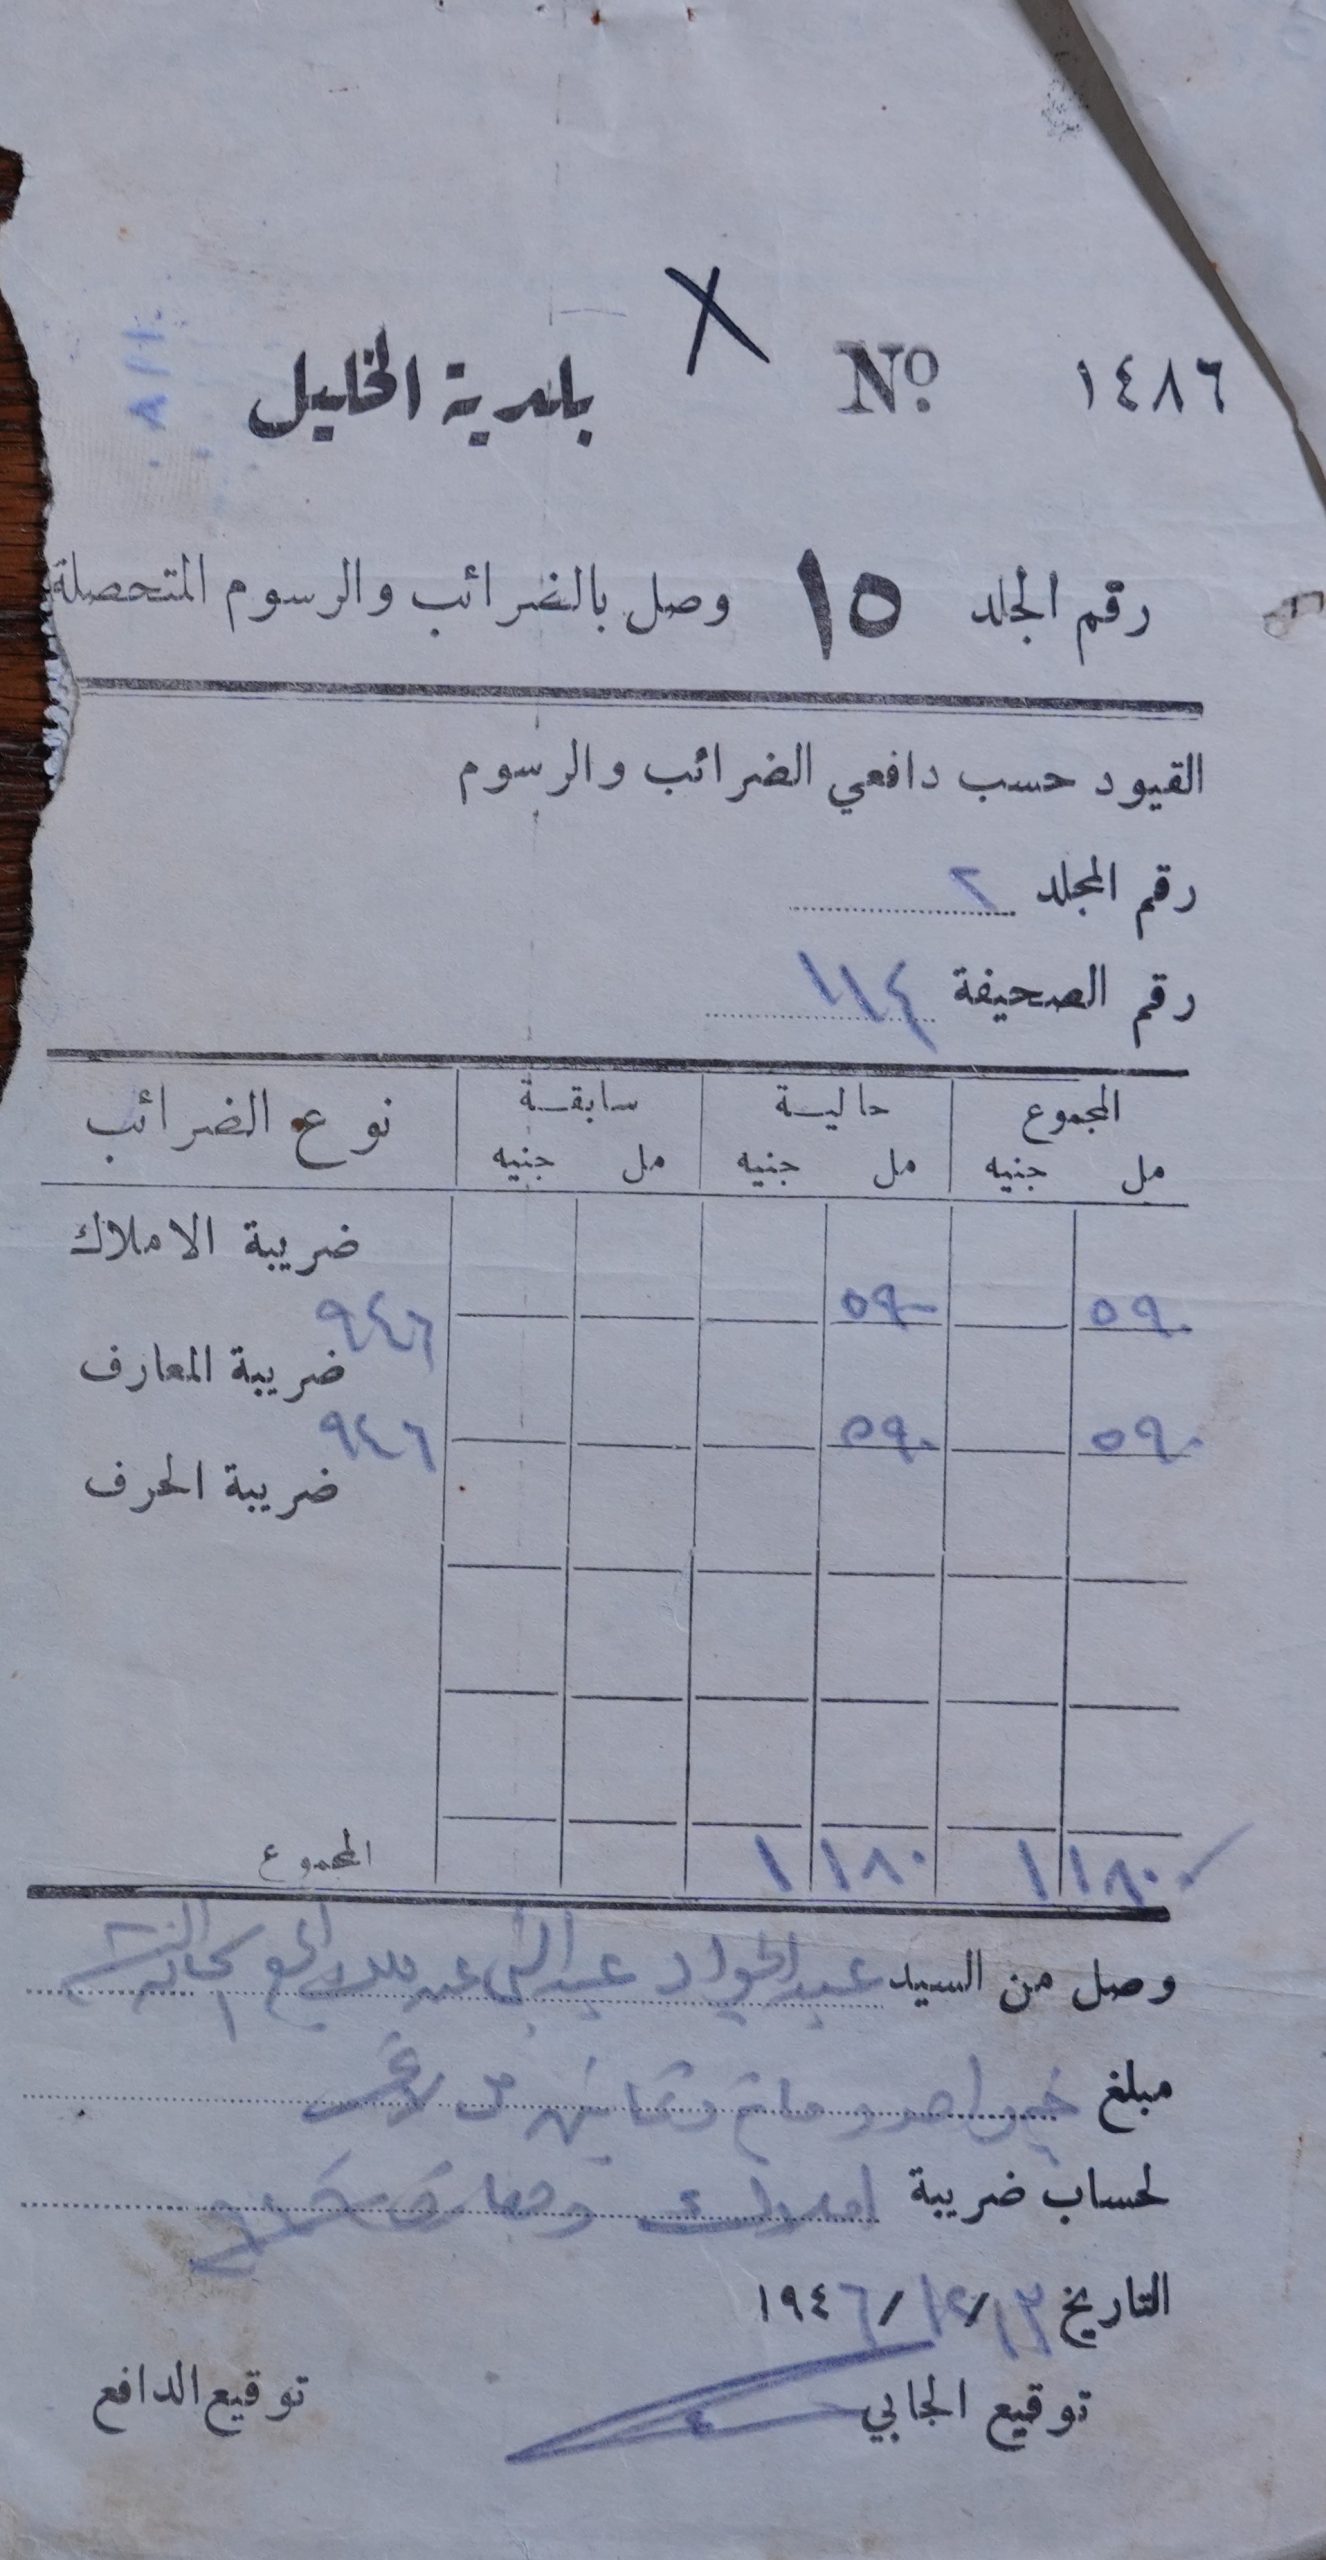 بلدية الخليل X No. ١٤٨٦
رقم الجلد ١٥ وصل بالضرائب والرسوم المتحصلة
القيود حسب دافعي الضرائب والرسوم
رقم المجلد ٢
رقم الصحيفة ١١٤
المجموع حالية سابقة نوع الضرائب
مل جنيه مل جنيه مل جنيه
ضريبة الاملاك
٥٩٠ ٥٩٠ ٩٤٦
ضريبة المعارف
٥٩٠ ٥٩٠ ٩٤٦
ضريبة الحرف
١ ١٨٠ ١ ١٨٠ المجموع
وصل من السيد عبد الجواد عبد النبي
مبلغ جنيه واحد ومائة وثمانين مل
لحساب ضريبة املاك ومعارف
التاريخ ١٣/١٢/١٩٤٦
توقيع الجابي توقيع الدافع